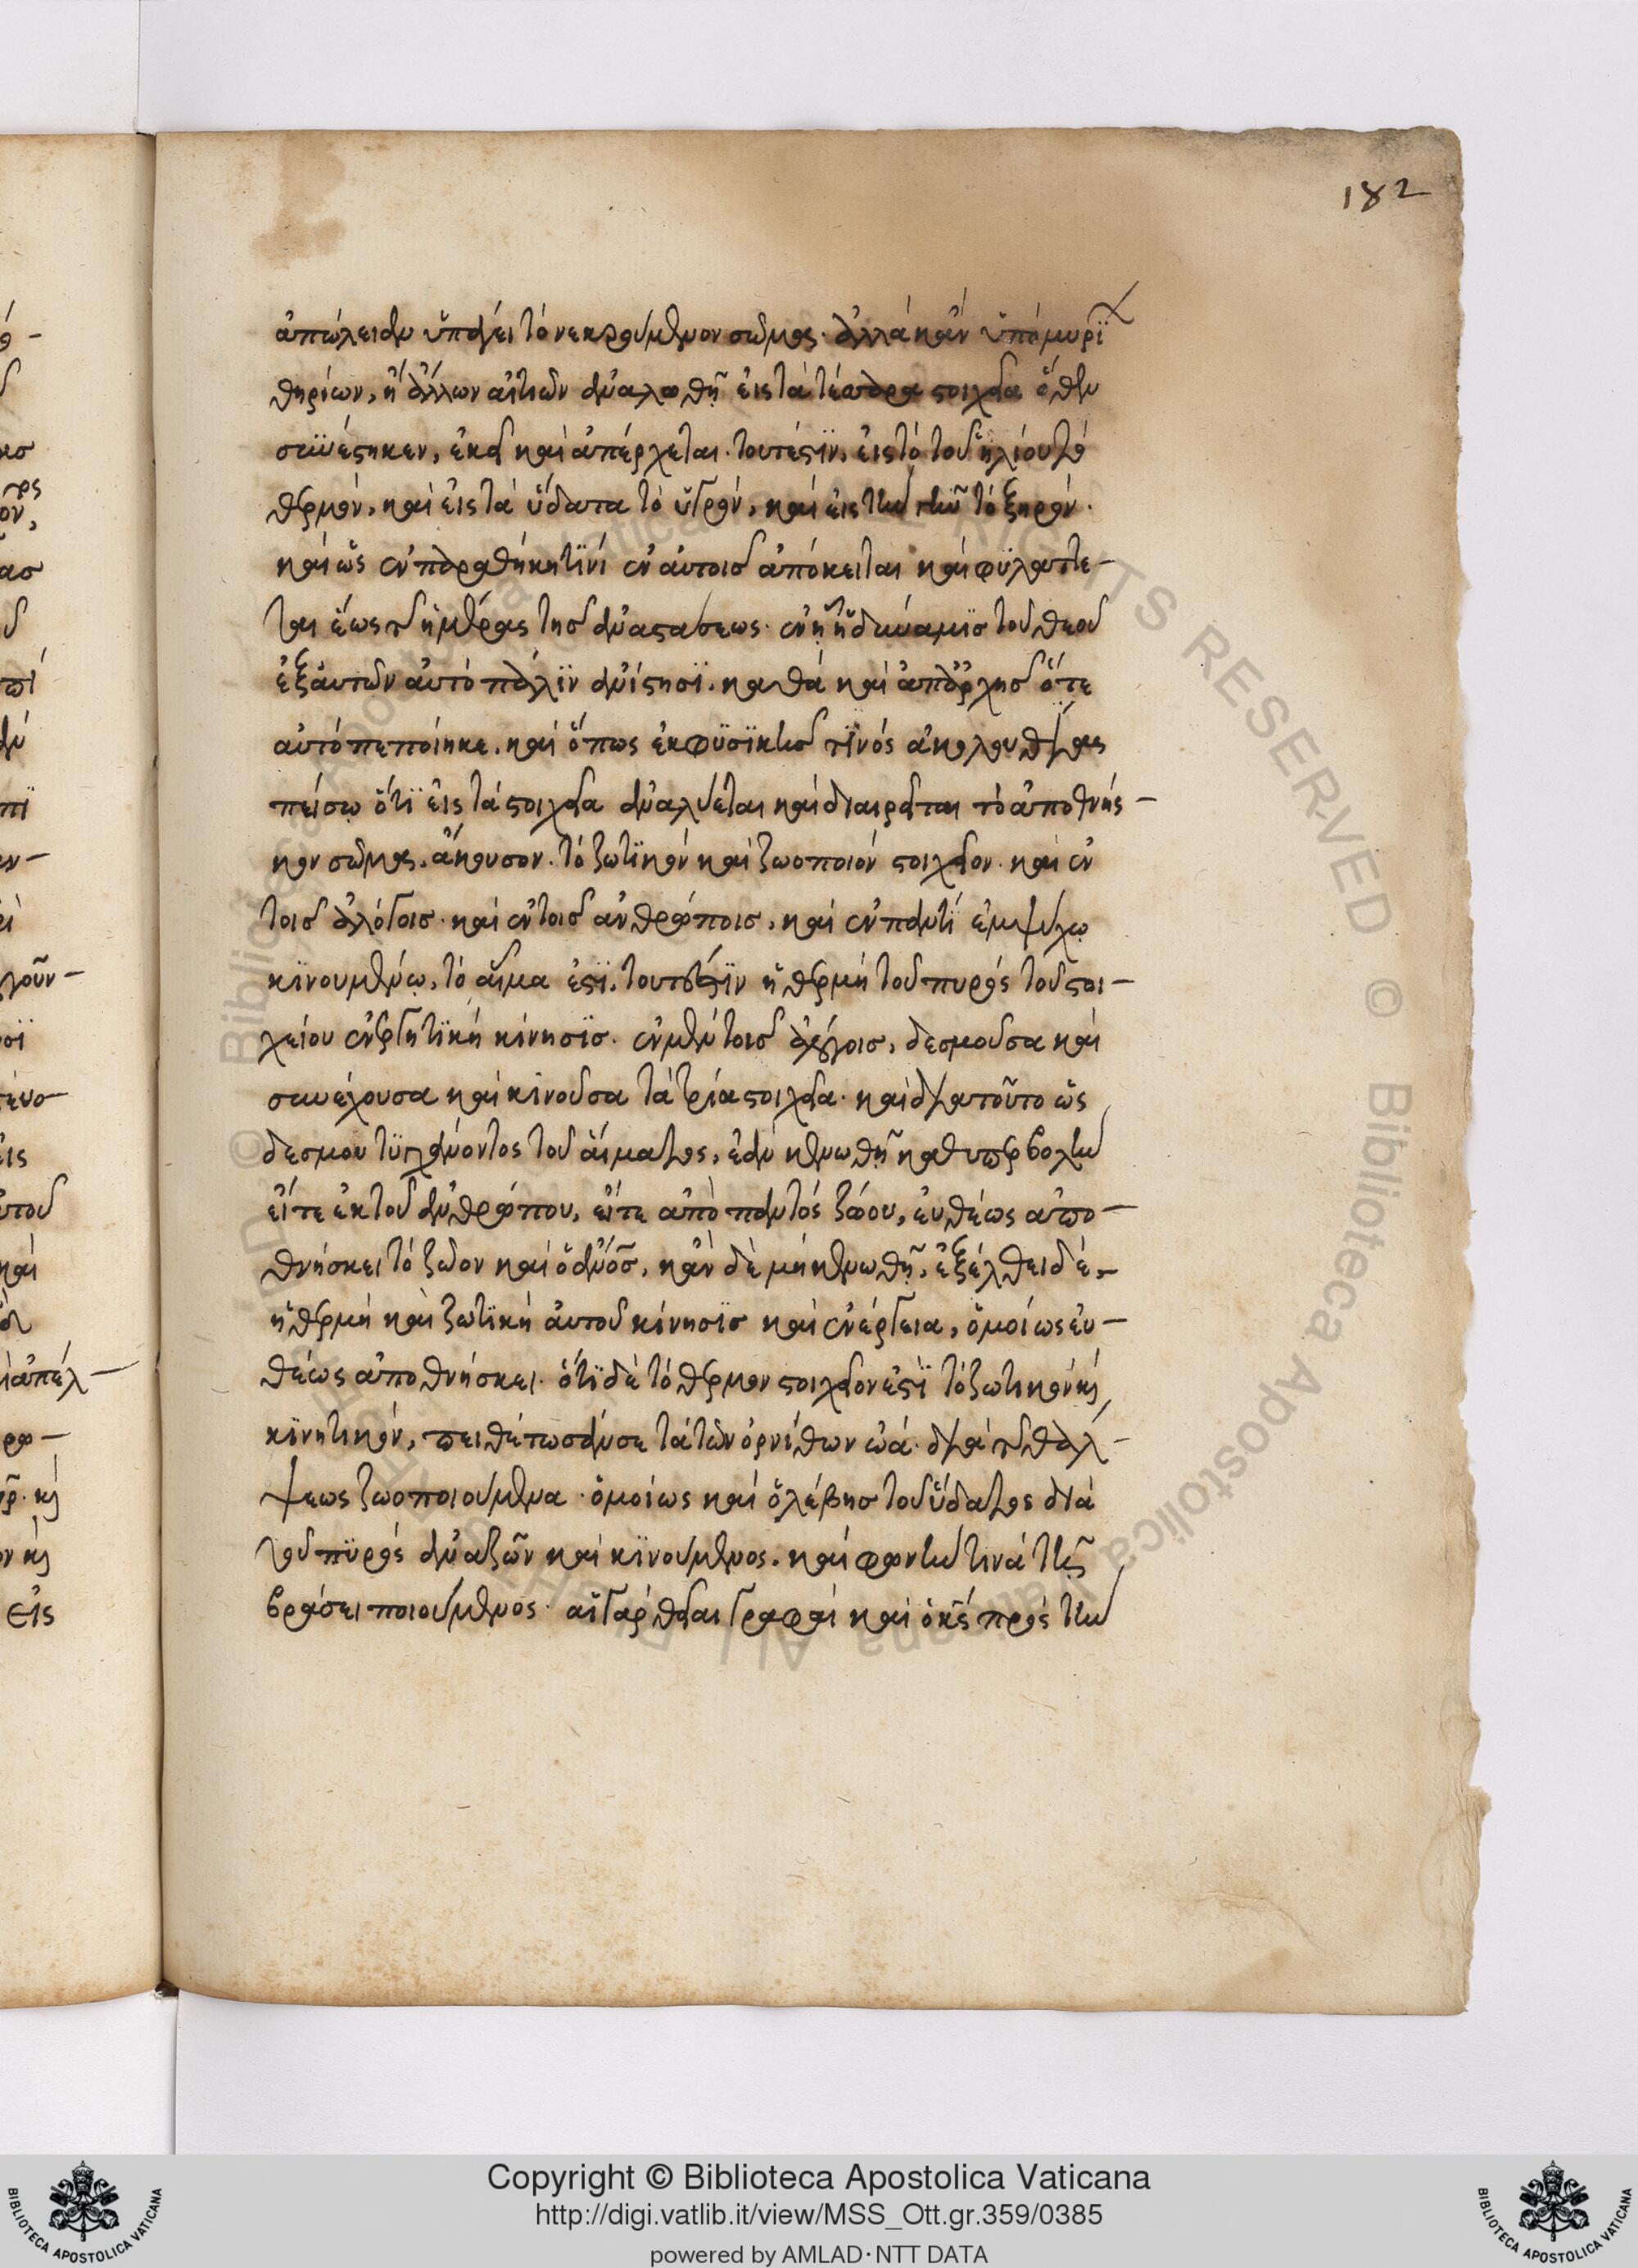 182
ἀπώλειαν ὑπάγει τὸ νεκρούμενον σῶμα· ἀλλὰ κἂν ὑπὸ μυρί
θηρίων, ἢ ἄλλων αἰτιῶν ἀναλωθῇ εἰς τὰ τέσσαρα στοιχεῖα ὅθεν
συνέστηκεν, ἐκεῖ καὶ ἀπέρχεται· τουτέστιν, εἰς τὸ τοῦ ἡλίου τὸ
θερμόν, καὶ εἰς τὰ ὕδατα τὸ ὑγρόν, καὶ εἰς τὴν γῆν τὸ ξηρόν·
καὶ ὡς ἐν παραθήκη τινί ἐν αὐτοῖς ἀπόκειται καὶ φυλάττε-
ται ἕως τῆς ἡμέρας τῆς ἀναστάσεως· ἐν ᾗ ἡ δύναμις τοῦ θεοῦ
ἐξ αὐτῶν αὐτὸ πάλιν ἀνίστησι· καθὰ καὶ ἀπ' ἀρχῆς ὅτε
αὐτὸ πεποίηκε· καὶ ὅπως ἐκ φυσικῆς τινὸς ἀκολουθίας
πείσω ὅτι εἰς τὰ στοιχεῖα ἀναλύεται καὶ διαιρεῖται τὸ ἀποθνῆσ-
κον σῶμα· ἄκουσον· τὸ ζωτικὸν καὶ ζωοποιὸν στοιχεῖον· καὶ ἐν
τοῖς ἀλόγοις· καὶ ἐν τοῖς ἀνθρώποις, καὶ ἐν παντὶ ἐμψύχῳ
κινουμένῳ, τὸ αἷμα ἐστί· τουτέστιν ἡ θερμὴ τοῦ πυρὸς τοῦ στοι-
χείου ἐνεργητικὴ κίνησις· ἐν μὲν τοῖς ἀλόγοις, δεσμοῦσα καὶ
συνέχουσα καὶ κινοῦσα τὰ τρία στοιχεῖα· καὶ διατοῦτο ὡς
δεσμοῦ τυγχάνοντος τοῦ αἵματος, ἐὰν κενωθῇ καθυπερβολὴν
εἴτε ἐκ τοῦ ἀνθρώπου, εἴτε ἀπὸ παντὸς ζώου, εὐθέως ἀπο-
θνήσκει τὸ ζῶον καὶ ὁ ἄνος, κἂν δὲ μὴ κενωθῇ, ἐξέλθει δέ,
ἡ θερμὴ καὶ ζωτικὴ αὐτοῦ κίνησις καὶ ἐνέργεια, ὁμοίως εὐ-
θέως ἀποθνήσκει· ὅτι δὲ τὸ θερμὸν στοιχεῖον ἐστὶ τὸ ζωτικὸν κὶ
κινητικόν, πειθέτωσάν σε τὰ τῶν ὀρνίθων ὠά· διὰ τῆς θάλ-
ψεως ζωοποιούμενα· ὁμοίως καὶ ὁ λέβης τοῦ ὕδατος διὰ
τοῦ πυρὸς ἀναζῶν καὶ κινούμενος· καὶ φωνὴν τινὰ τῇ
βράσει ποιούμενος· αἱ γὰρ θεῖαι γραφαὶ καὶ ὁ κς πρὸς τὴν
Copyright © Biblioteca Apostolica Vaticana
http://digi.vatlib.it/view/MSS_Ott.gr.359/0385
powered by AMLAD·NTT DATA